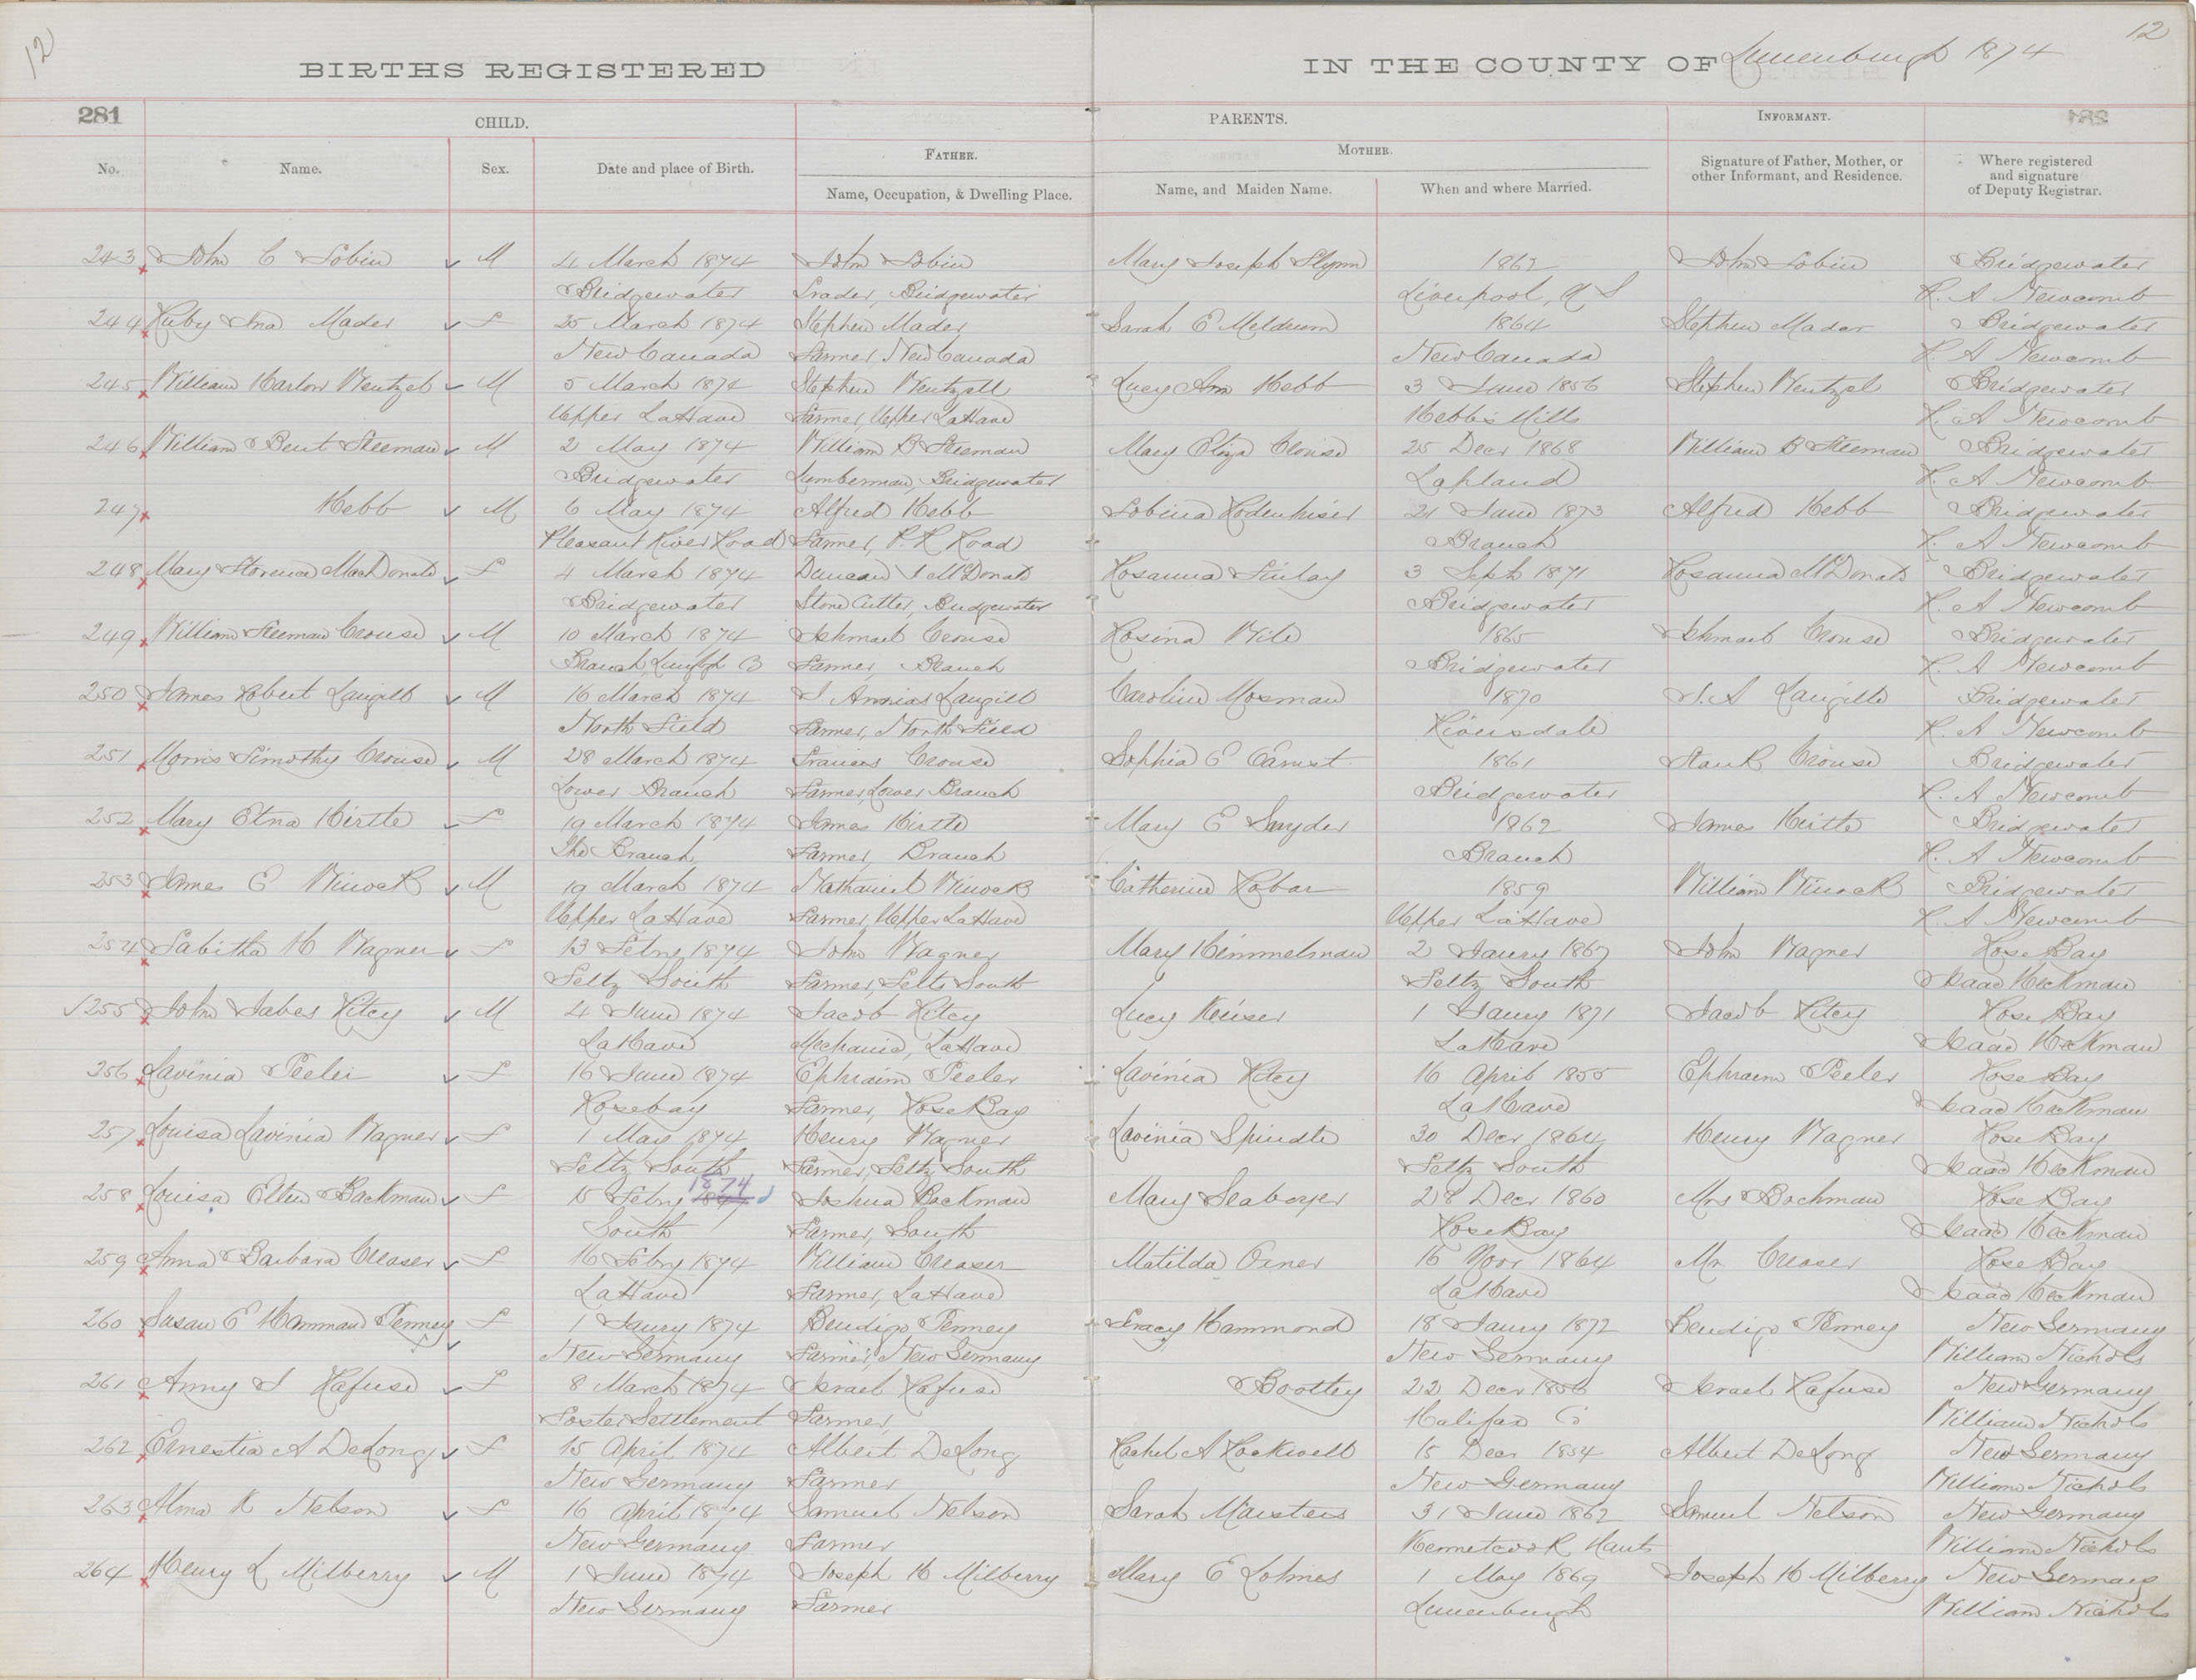 12
12
BIRTHS REGISTERED
IN THE COUNTY OF Lunenburgh 1874
281
CHILD.
PARENTS.
INFORMANT.
No.
Name.
Sex.
Date and place of Birth.
FATHER.
Name, Occupation, & Dwelling Place.
MOTHER.
Name, and Maiden Name.
When and where Married.
Signature of Father, Mother, or
other Informant, and Residence.
Where registered
and signature
of Deputy Registrar.
243 John C Tobin M 4 March 1874 John Tobin Mary Joseph Flynn 1862 John Tobin Bridgewater
Bridgewater Trader, Bridgewater Liverpool, N S R. A Newcomb
244 Ruby Ina Mader F 25 March 1874 Stephen Mader Sarah E Meldrum 1864 Stephen Mader Bridgewater
New Canada Farmer, New Canada New Canada R. A Newcomb
245 William Harlow Wentzel M 5 March 1874 Stephen Wentzell Lucy Ann Hebb 3 June 1856 Stephen Wentzel Bridgewater
Upper LaHave Farmer, Upper LaHave Hebb's Mills R. A Newcomb
246 William Bent Steeman M 2 May 1874 William B Steeman Mary Eliza Crouse 25 Decr 1868 William B Steeman Bridgewater
Bridgewater Lumberman, Bridgewater Lapland R. A Newcomb
247 Hebb M 6 May 1874 Alfred Hebb Sobina Rodenhiser 21 June 1873 Alfred Hebb Bridgewater
Pleasant River Road Farmer, P. R Road Branch R. A Newcomb
248 Mary Florence MacDonald F 4 March 1874 Duncan J McDonald Rosanna Finlay 3 Sept 1871 Rosanna McDonald Bridgewater
Bridgewater Stone Cutter, Bridgewater Bridgewater R. A Newcomb
249 William Steeman Crouse M 10 March 1874 Ishmael Crouse Rosina Wile 1865 Ishmael Crouse Bridgewater
Branch, Farmer, Branch Bridgewater R. A Newcomb
250 James Robert Langill M 16 March 1874 J Annias Langill Caroline Mosman 1870 J. A Langille Bridgewater
North Field Farmer, North Field Riversdale R. A Newcomb
251 Morris Timothy Crouse M 28 March 1874 Francis Crouse Sophia E Earnst 1861 Crouse Bridgewater
Lower Branch Farmer, Lower Branch Bridgewater R. A Newcomb
252 Mary Etna Hirtle F 19 March 1874 James Hirtle Mary E Snyder 1862 James Hirtle Bridgewater
The Branch, Farmer, Branch Branch R. A Newcomb
253 James E Winock M 19 March 1874 Nathaniel Winock Catherine Robar 1859 William Winock Bridgewater
Upper LaHave Farmer, Upper LaHave Upper LaHave R. A Newcomb
254 Tabitha H Wagner F 13 Febry 1874 John Wagner Mary Himmelman 2 Jany 1867 John Wagner Rose Bay
Feltz South Farmer, Felts South Feltz South Isaac Heckman
255 John Jabes Ritcy M 4 June 1874 Jacob Ritcy Lucy Keiser 1 Jany 1871 Jacob Ritcy Rose Bay
LaHave Mechanic, LaHave LaHave Isaac Heckman
256 Lavinia Peeler F 16 June 1874 Ephraim Peeler Lavinia Ritcy 16 April 1855 Ephraim Peeler Rose Bay
Rosebay Farmer, Rose Bay LaHave Isaac Heckman
257 Louisa Lavinia Wagner F 1 May 1874 Henry Wagner Lavinia Spindle 30 Decr 1864 Henry Wagner Rose Bay
Feltz South Farmer, Feltz South Feltz South Isaac Heckman
258 Louisa Ellen Backman F 15 Febry 1874 Joshua Backman Mary Seaboyer 28 Decr 1860 Mrs Bachman Rose Bay
South Farmer, South Rose Bay Isaac Heckman
259 Anna Barbara Creaser F 16 Febry 1874 William Creaser Matilda Oxner 16 Novr 1864 Mr Creaser Rose Bay
LaHave Farmer, LaHave LaHave Isaac Heckman
260 Susan E Hamman Penney F 1 Jany 1874 Bendigo Penney Tracy Hammond 18 Jany 1872 Bendigo Penney New Germany
New Germany Farmer, New Germany New Germany William Nichols
261 Anny S Rafuse F 8 March 1874 Israel Rafuse Bootley 22 Decr 1856 Israel Rafuse New Germany
Foster Settlement Farmer, Halifax Co William Nichols
262 Ernestia A DeLong F 15 April 1874 Albert DeLong Rachel A Rockwell 15 Decr 1854 Albert DeLong New Germany
New Germany Farmer New Germany William Nichols
263 Alma K Nelson F 16 April 1874 Samuel Nelson Sarah Marsters 31 June 1862 Samuel Nelson New Germany
New Germany Farmer Kennetcook Hants William Nichols
264 Henry L Milberry M 1 June 1874 Joseph H Milberry Mary E Lohnes 1 May 1869 Joseph H Milberry New Germany
New Germany Farmer Lunenburgh William Nichols